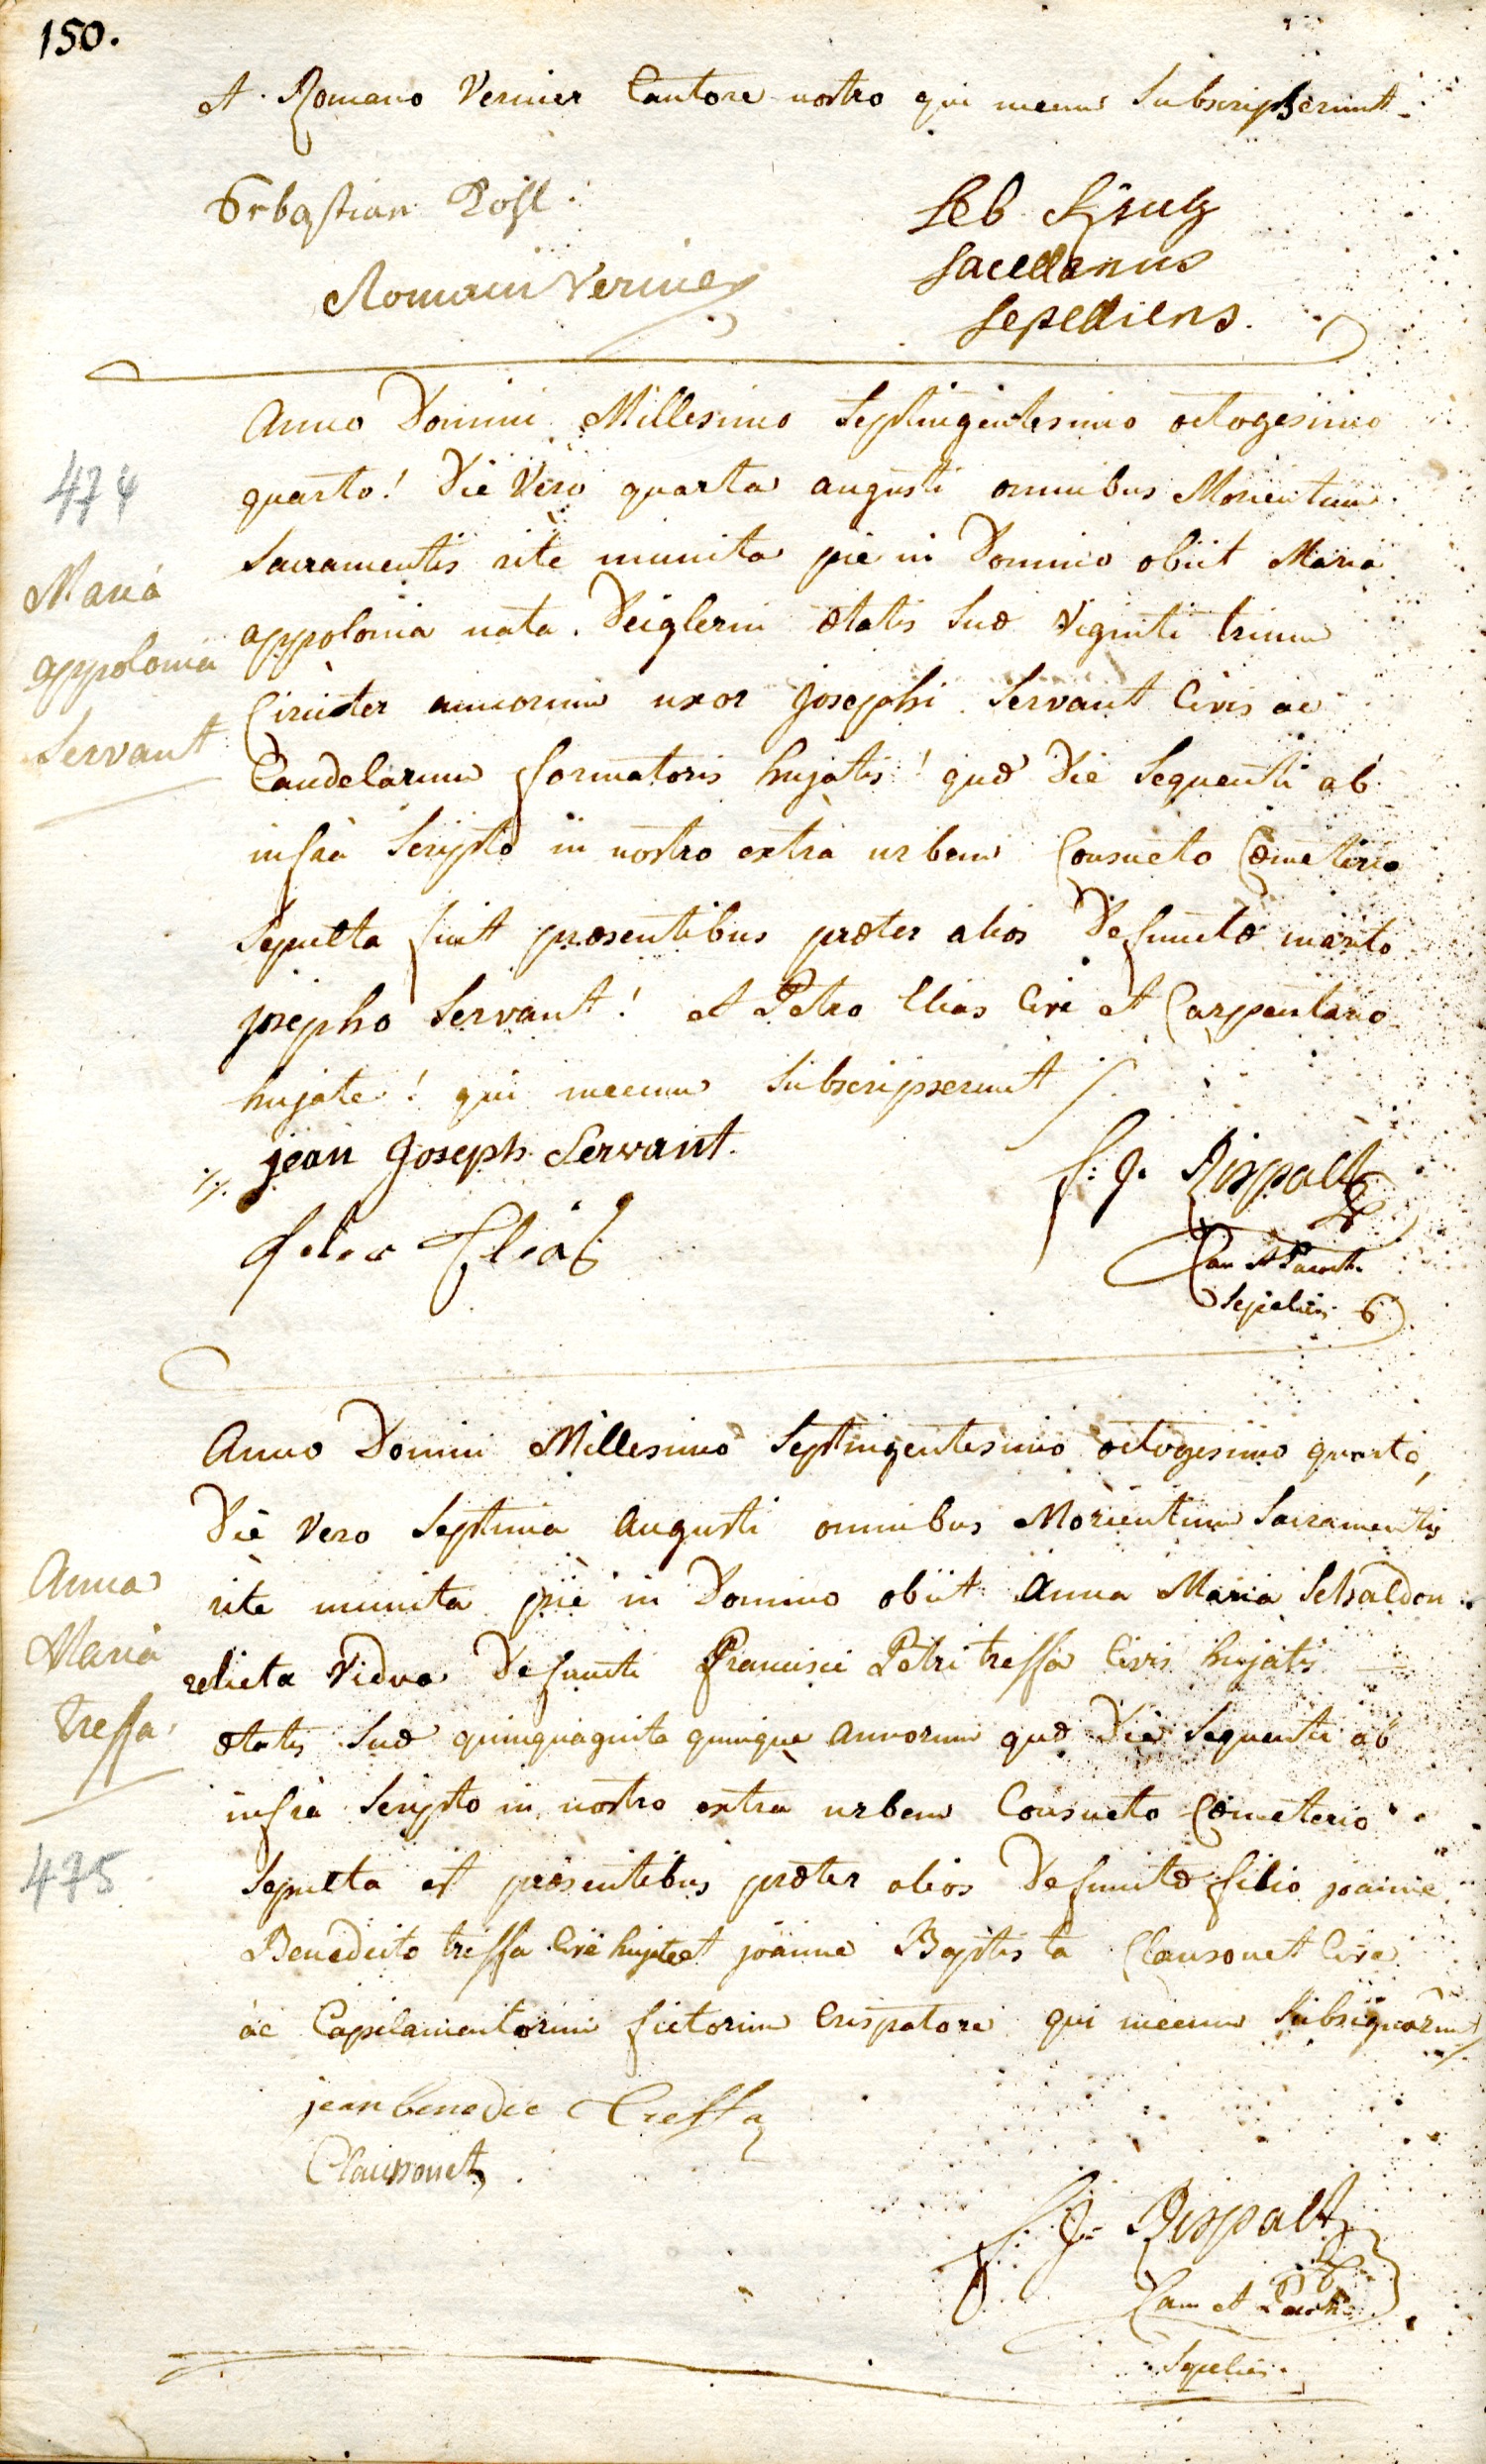 150.
et Romano Vernier Cantore nostro qui mecum Subscripserunt
Sebastian
Romain Vernier
Seb
Sacellanus
Sepelliens.
Anno Domini Millesimo Septingentesimo octogesimo
474
quarto! Die Vero quarta augusti omnibus Morientium
Sacramentis rite munita piè in Domino obiit Maria
Maria
appolonia nata Deiglerin ætatis Suæ Viginti trium
appolonia
Circiter annorum uxor Josephi Servant Civis ac
Servant
Candelarum formatoris hujatis! quæ Die Sequenti ab
infrà Scripto in nostro extrà urbem Consueto Cœmeterio
Sepulta fuit præsentibus præter alios Defunctæ marito
josepho Servant! et Petro Elias Cive et Carpentario
hujate! qui mecum Subscripserunt
jean Joseph Servant.
Elias
f: J. Rispalt
Can et Paroch.
Sepeliens
Anno Domini Millesimo Septingentesimo octogesimo quarto,
Die Vero Septima Augusti omnibus Morientium Sacramentis
Anna
rite munita piè in Domino obiit Anna Maria Schaldon
Maria
relicta Vidua Defuncti Francisci Petri treffa Civis hujatis
treffa
ætatis Suæ quinquaginta quinque annorum quæ Die Sequenti ab
infrà Scripto in nostro extrà urbem Consueto Cœmeterio
475
Sepulta est præsentibus præter alios Defunctæ filio joanne
Benedicto treffa Cive hujate et joanne Baptista Clausonet Cive
ac Capilamentorum fictorum Crispatore qui mecum Subsignarunt
jean benedic Treffa
Clausonet
f: J: Rispalt
Can et Paroch.
Sepeliens